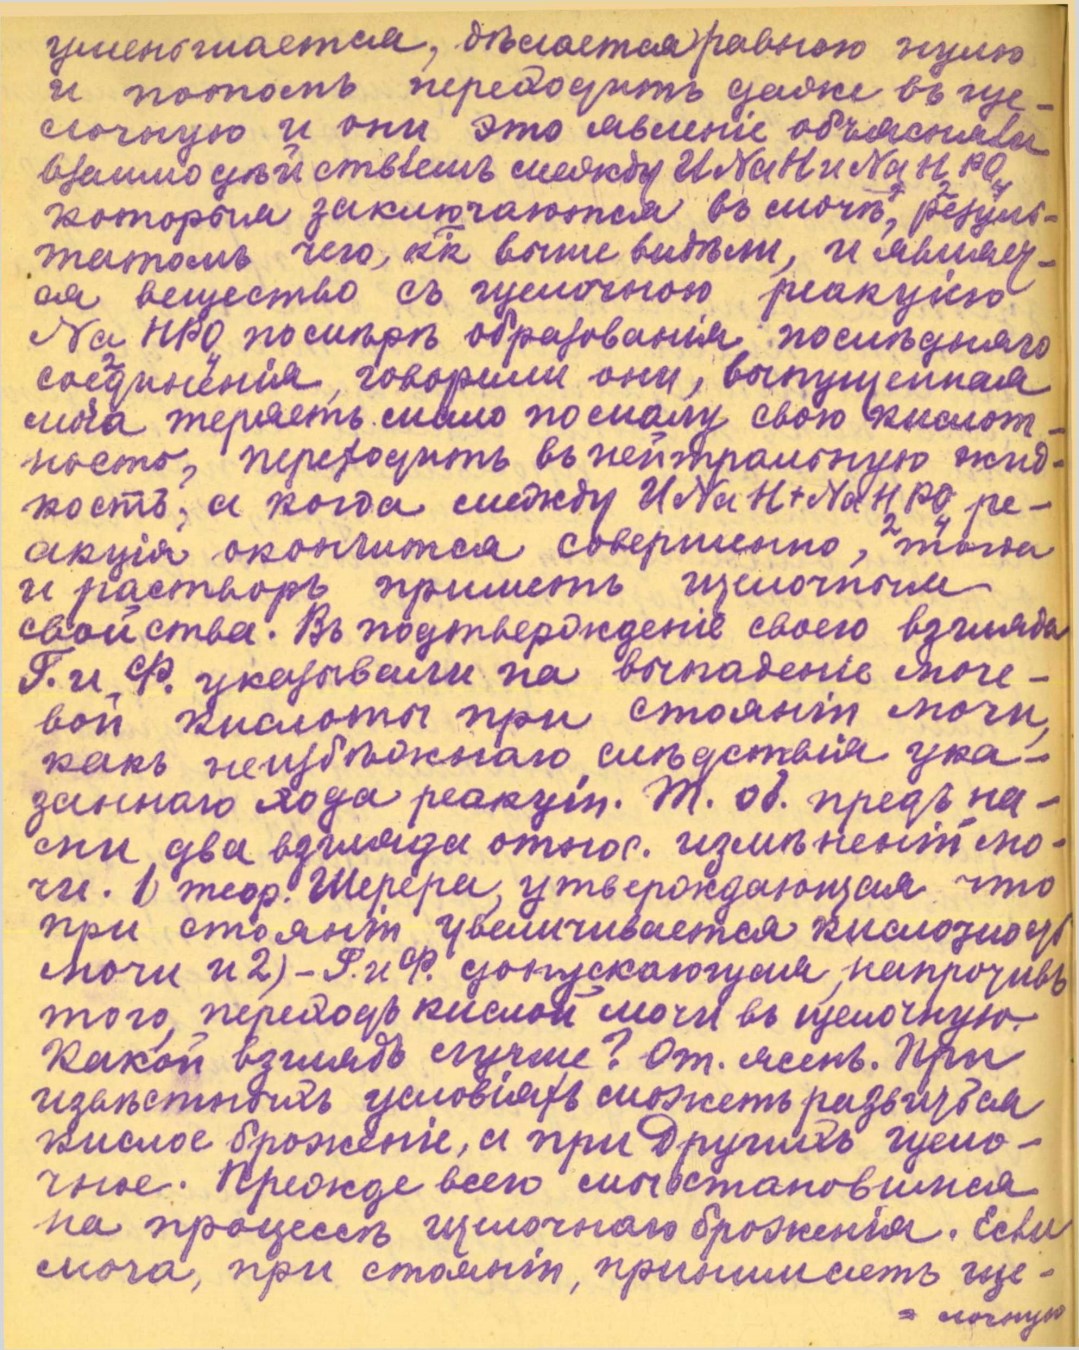 уменьшается, дѣлается равною нулю
и потомъ переходитъ даже въ ще-
лочную и они это явленіе объясняли
взаимодѣйствіемъ между ŪNaH и NaH₂PO₄
которыя заключаются въ мочѣ, резуль-
татомъ чего, кк выше видѣли, и являет-
ся вещество съ щелочною реакціею
Na₂HPO₄ по мѣрѣ образованія послѣдняго
соединенія, говорили они, выпущенная
моча теряетъ мало по малу свою кислот-
ность, переходитъ въ нейтральную жид-
кость; а когда между ŪNaH+NaH₂PO₄ ре-
акція окончится совершенно, тогда
и растворъ приметъ щелочныя
свойства. Въ подтвержденіе своего взгляда
Г. и Ф. указывали на выпаденіе моче-
вой кислоты при стояніи мочи,
какъ неизбѣжнаго слѣдствія ука-
заннаго хода реакціи. Т. об. предъ на-
ми два взгляда относ. измѣненій мо-
чи. 1) теор. Шерера, утверждающая что
при стояніи увеличивается кислотность
мочи и 2) – Г. и Ф. допускающая, напротивъ
того, переходъ кислой мочи въ щелочную.
Какой взглядъ лучше? От. ясенъ. При
извѣстныхъ условіяхъ можетъ развиться
кислое броженіе, а при другихъ щело-
чное. Прежде всего мы остановимся
на процессѣ щелочнаго броженія. Если
моча, при стояніи, принимаетъ ще-
= лочную